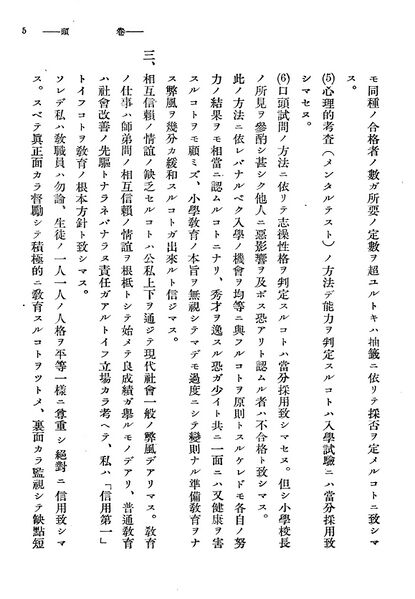 卷頭
5
モ同種ノ合格者ノ數ガ所要ノ定數ヲ超ユルトキハ抽籤ニ依リテ採否ヲ定メルコトニ致シマ
ス。
(5)心理的考査（メンタルテスト）ノ方法デ能力ヲ判定スルコトハ入學試驗ニハ當分採用致
シマセヌ。
(6)口頭試問ノ方法ニ依リテ志操性格ヲ判定スルコトハ當分採用致シマセヌ。但シ小學校長
ノ所見ヲ參酌シ甚シク他人ニ惡影響ヲ及ボス恐アリト認ムル者ハ不合格ト致シマス。
此ノ方法ニ依レバナルベク入學ノ機會ヲ均等ニ與フルコトヲ原則トスルケレドモ各自ノ努
力ノ結果ヲモ相當ニ認ムルコトニナリ、秀才ヲ逸スル恐ガ少イト共ニ一面ニハ又健康ヲ害
スルコトヲモ顧ミズ、小學敎育ノ本旨ヲ無視シテマデモ過度ニシテ變則ナル準備敎育ヲナ
ス弊風ヲ幾分カ緩和スルコトガ出來ルト信ジマス。
三、相互信賴ノ情誼ノ缺乏セルコトハ公私上下ヲ通ジテ現代社會一般ノ弊風デアリマス。敎育
ノ仕事ハ師弟間ノ相互信賴ノ情誼ヲ根柢トシテ始メテ良成績ガ擧ルモノデアリ、普通敎育
ハ社會改善ノ先驅トナラネバナラヌ責任ガアルトイフ立場カラ考ヘテ、私ハ「信用第一」
トイフコトヲ敎育ノ根本方針ト致シマス。
ソレデ私ハ敎職員ハ勿論、生徒ノ一人一人ノ人格ヲ平等一樣ニ尊重シ絕對ニ信用致シマ
ス。スベテ眞正面カラ督勵シテ積極的ニ敎育スルコトヲツトメ、裏面カラ監視シテ缺點短